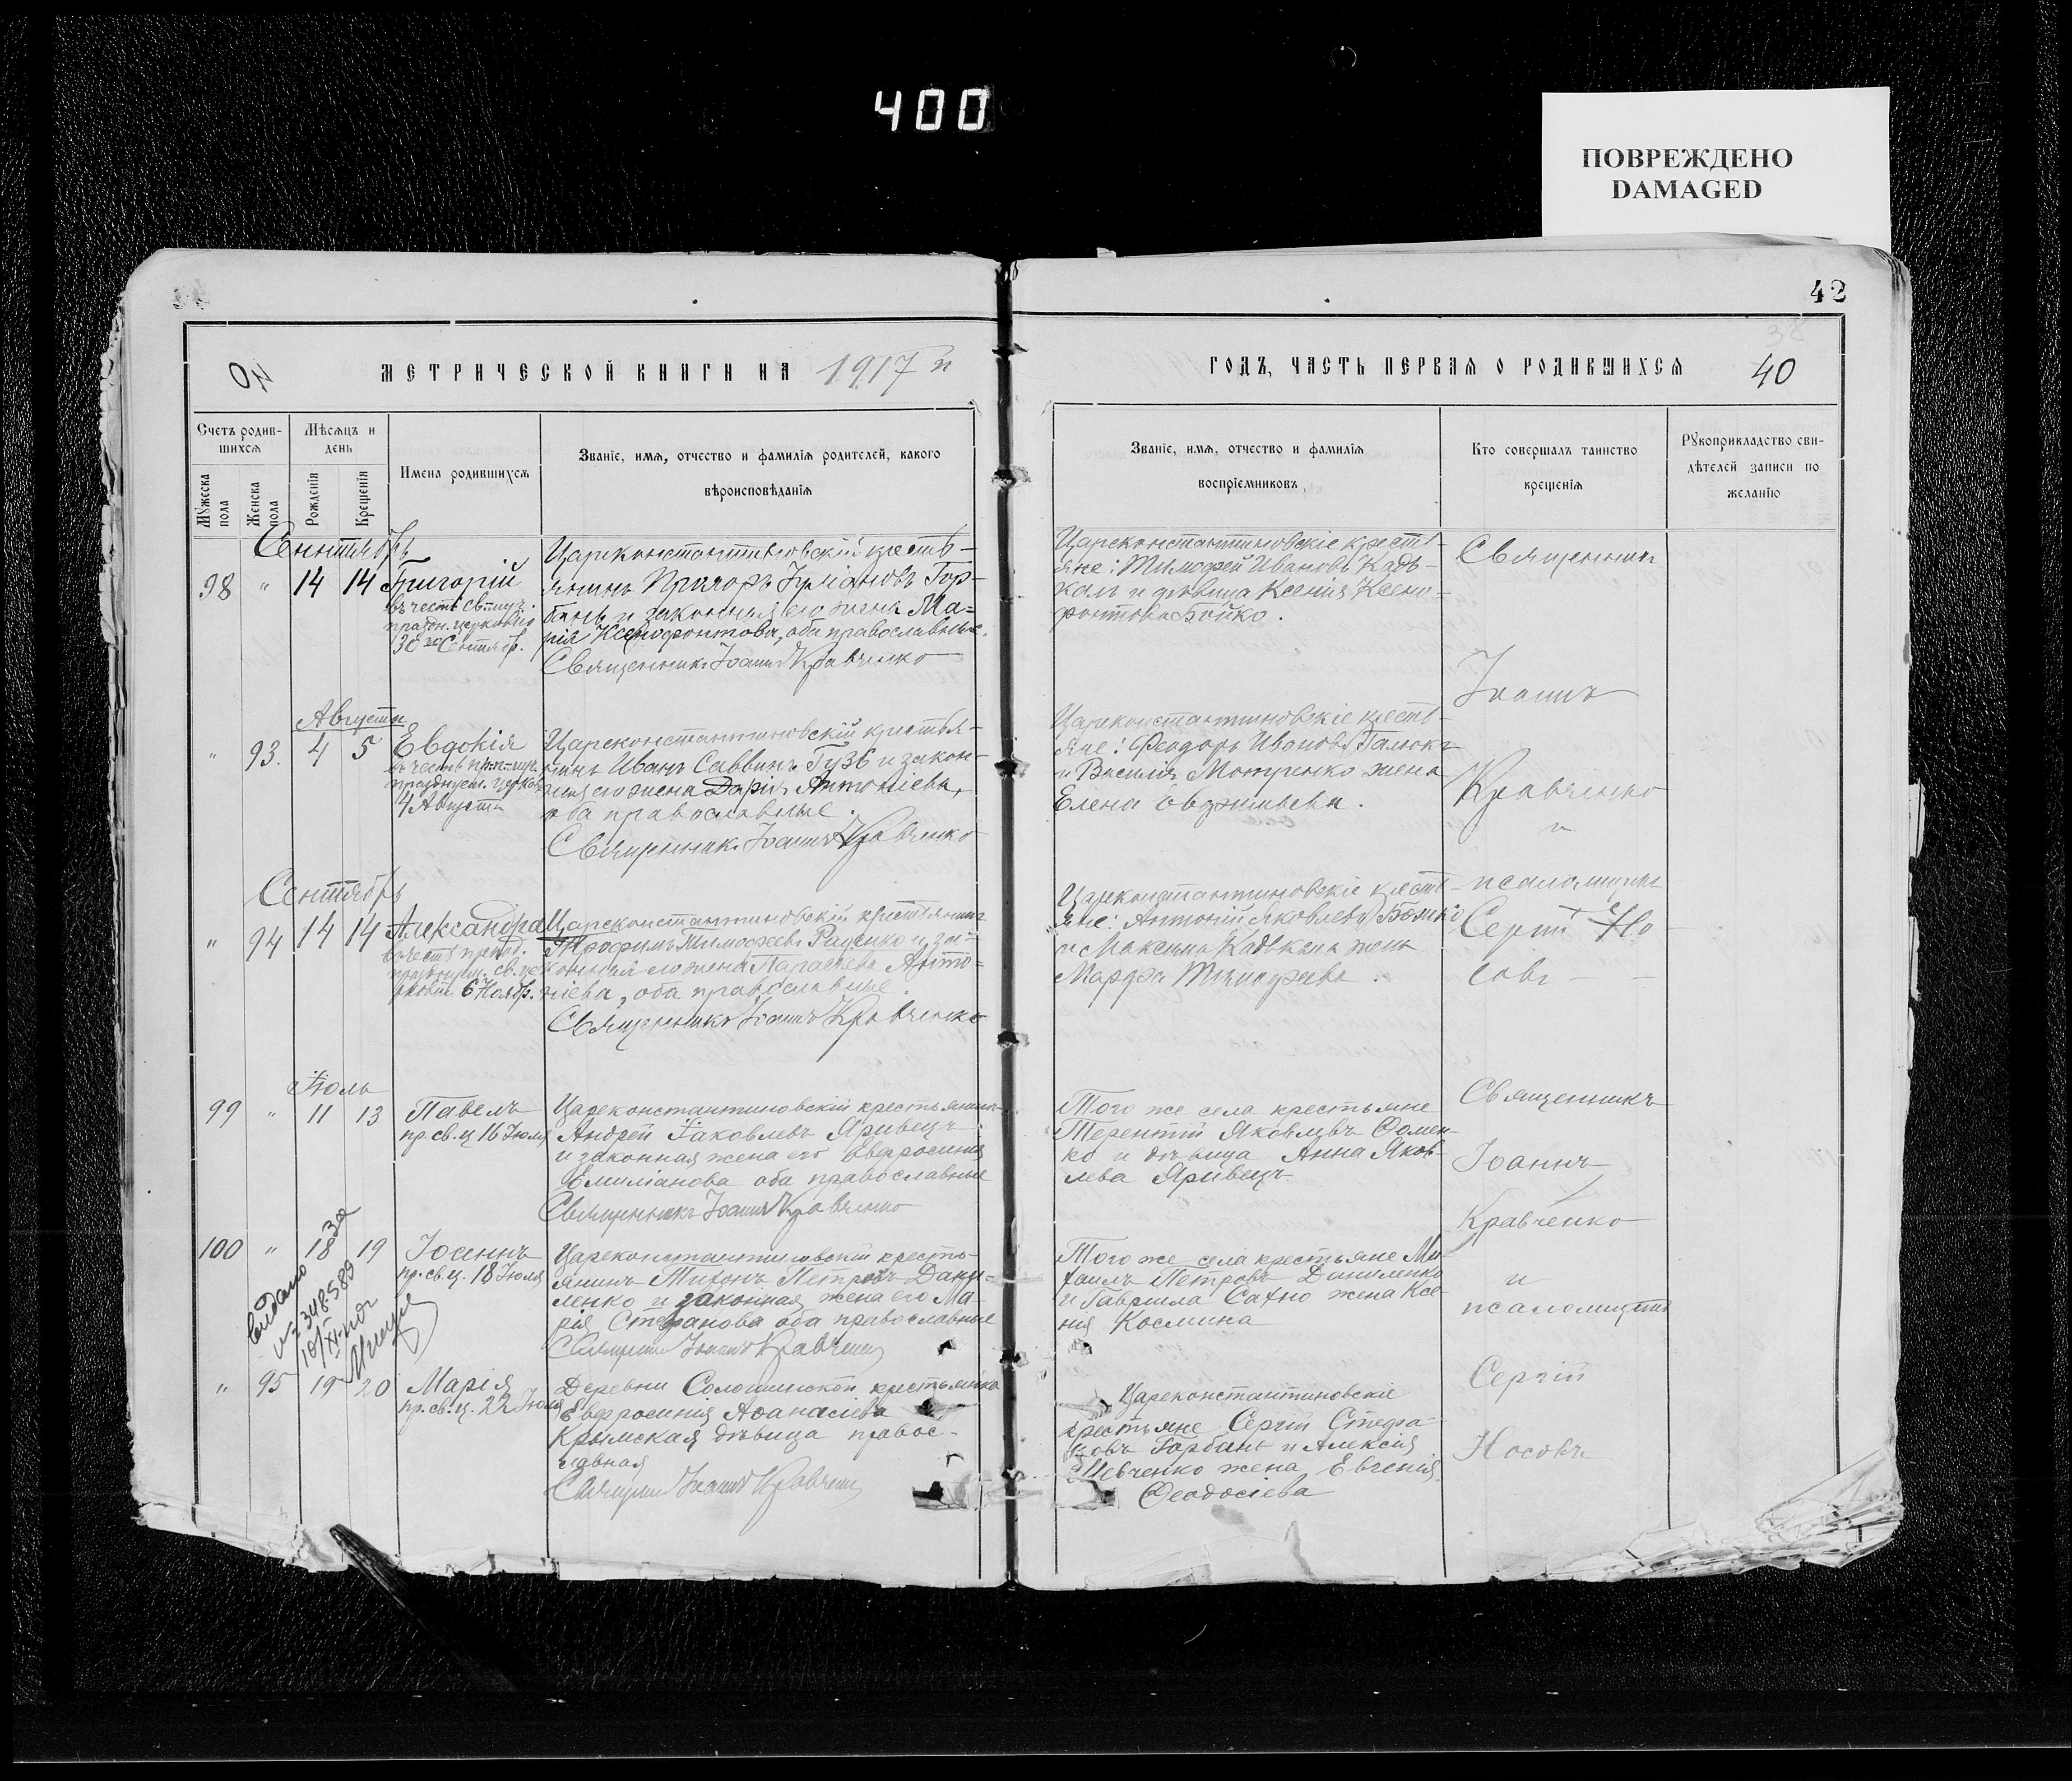 400
ПОВРЕЖДЕНО
DAMAGED
42
38
40
МЕТРИЧЕСКОЙ КНИГИ НА 1917й
ГОДЪ, ЧАСТЬ ПЕРВАЯ О РОДИВШИХСЯ
40
Счетъ родив-
шихся
Мужеска
пола
Женска
пола
Мѣсяцъ и
день
Рожденія
Крещенія
Имена родившихся
Званіе, имя, отчество и фамилія родителей, какого
вѣроисповѣданія
Званіе, имя, отчество и фамилія
воспріемниковъ.
Кто совершалъ таинство
крещенія
Рукоприкладство сви-
дѣтелей записи по
желанію
Сентябрь
98 " 14 14 Григорій
въ честь св. муч.
праздн. церковію
30го Сентяб.
Цареконстантиновскій кресть-
янинъ Гор-
бань и законная его жена Ма-
рія Ксенофонтова, оба православные.
Священникъ Іоаннъ Кравченко
Цареконстантиновскіе кресть-
яне: Тимофей Ивановъ Кадь-
калъ и дѣвица Ксенія Ксено-
фонтова Бойко.
Августъ
" 93. 4 5 Евдокія
въ честь пр. муч.
празднуем. церков.
4 Августа
Цареконстантиновскій крестья-
нинъ Иванъ Саввинъ Гузь и закон-
ная его жена Дарія Антоніева,
оба православные.
Священникъ Іоаннъ Кравченко
Цареконстантиновскіе кресть-
яне: Феодоръ Ивановъ
и Василія жена
Елена
Сентябрь
" 94 14 14 Александра
въ честь
празднуем. св. це-
ковію 6 Нояб.
Цареконстантиновскій крестьянинъ
Трофимъ Тимофеевъ Раденко и за-
конная его жена Анто-
ніева, оба православные.
Священникъ Іоаннъ Кравченко
Цареконстантиновскіе кресть-
яне: Антоній Яковлевъ
и Максима Кадькала жена
Марфа Тимофеева.
Священникъ
Іоаннъ
Кравченко
и
псаломщикъ
Сергій Но-
совъ
Іюль
99 " 11 13 Павелъ
пр. св. ц. 16 Іюля
Цареконстантиновскій крестьянинъ
Андрей Іаковлевъ Яривецъ
и законная жена его Евфросинія
Емиліанова оба православные
Священникъ Іоаннъ Кравченко
Того же села крестьяне
Терентій Яковлевъ Фомен-
ко и дѣвица Анна Яков-
лева Яривецъ
100 " 18 19
пр. св. ц. 18 Іюля
Цареконстантиновскій кресть-
янинъ Тихонъ Петровъ Дани-
ленко и законная жена его Ма-
рія Стефанова оба православные
Священникъ Іоаннъ Кравченко
Того же села крестьяне Ми-
хаилъ Петровъ Даниленко
и Гавріила Сахно жена Ксе-
нія Космина
Выдано
№ 348589
" 95 19 20 Марія
пр. св. ц. 22 Іюля
Деревни крестьянка
Евфросинія Аѳанасіева
Крымская дѣвица правос-
лавная
Священникъ Іоаннъ Кравченко
Цареконстантиновскіе
крестьяне Сергій Стефа-
новъ Горбань и Алексія
Шевченко жена Евгенія
Ѳеодосіева
Священникъ
Іоаннъ
Кравченко
и
псаломщикъ
Сергій
Носовъ